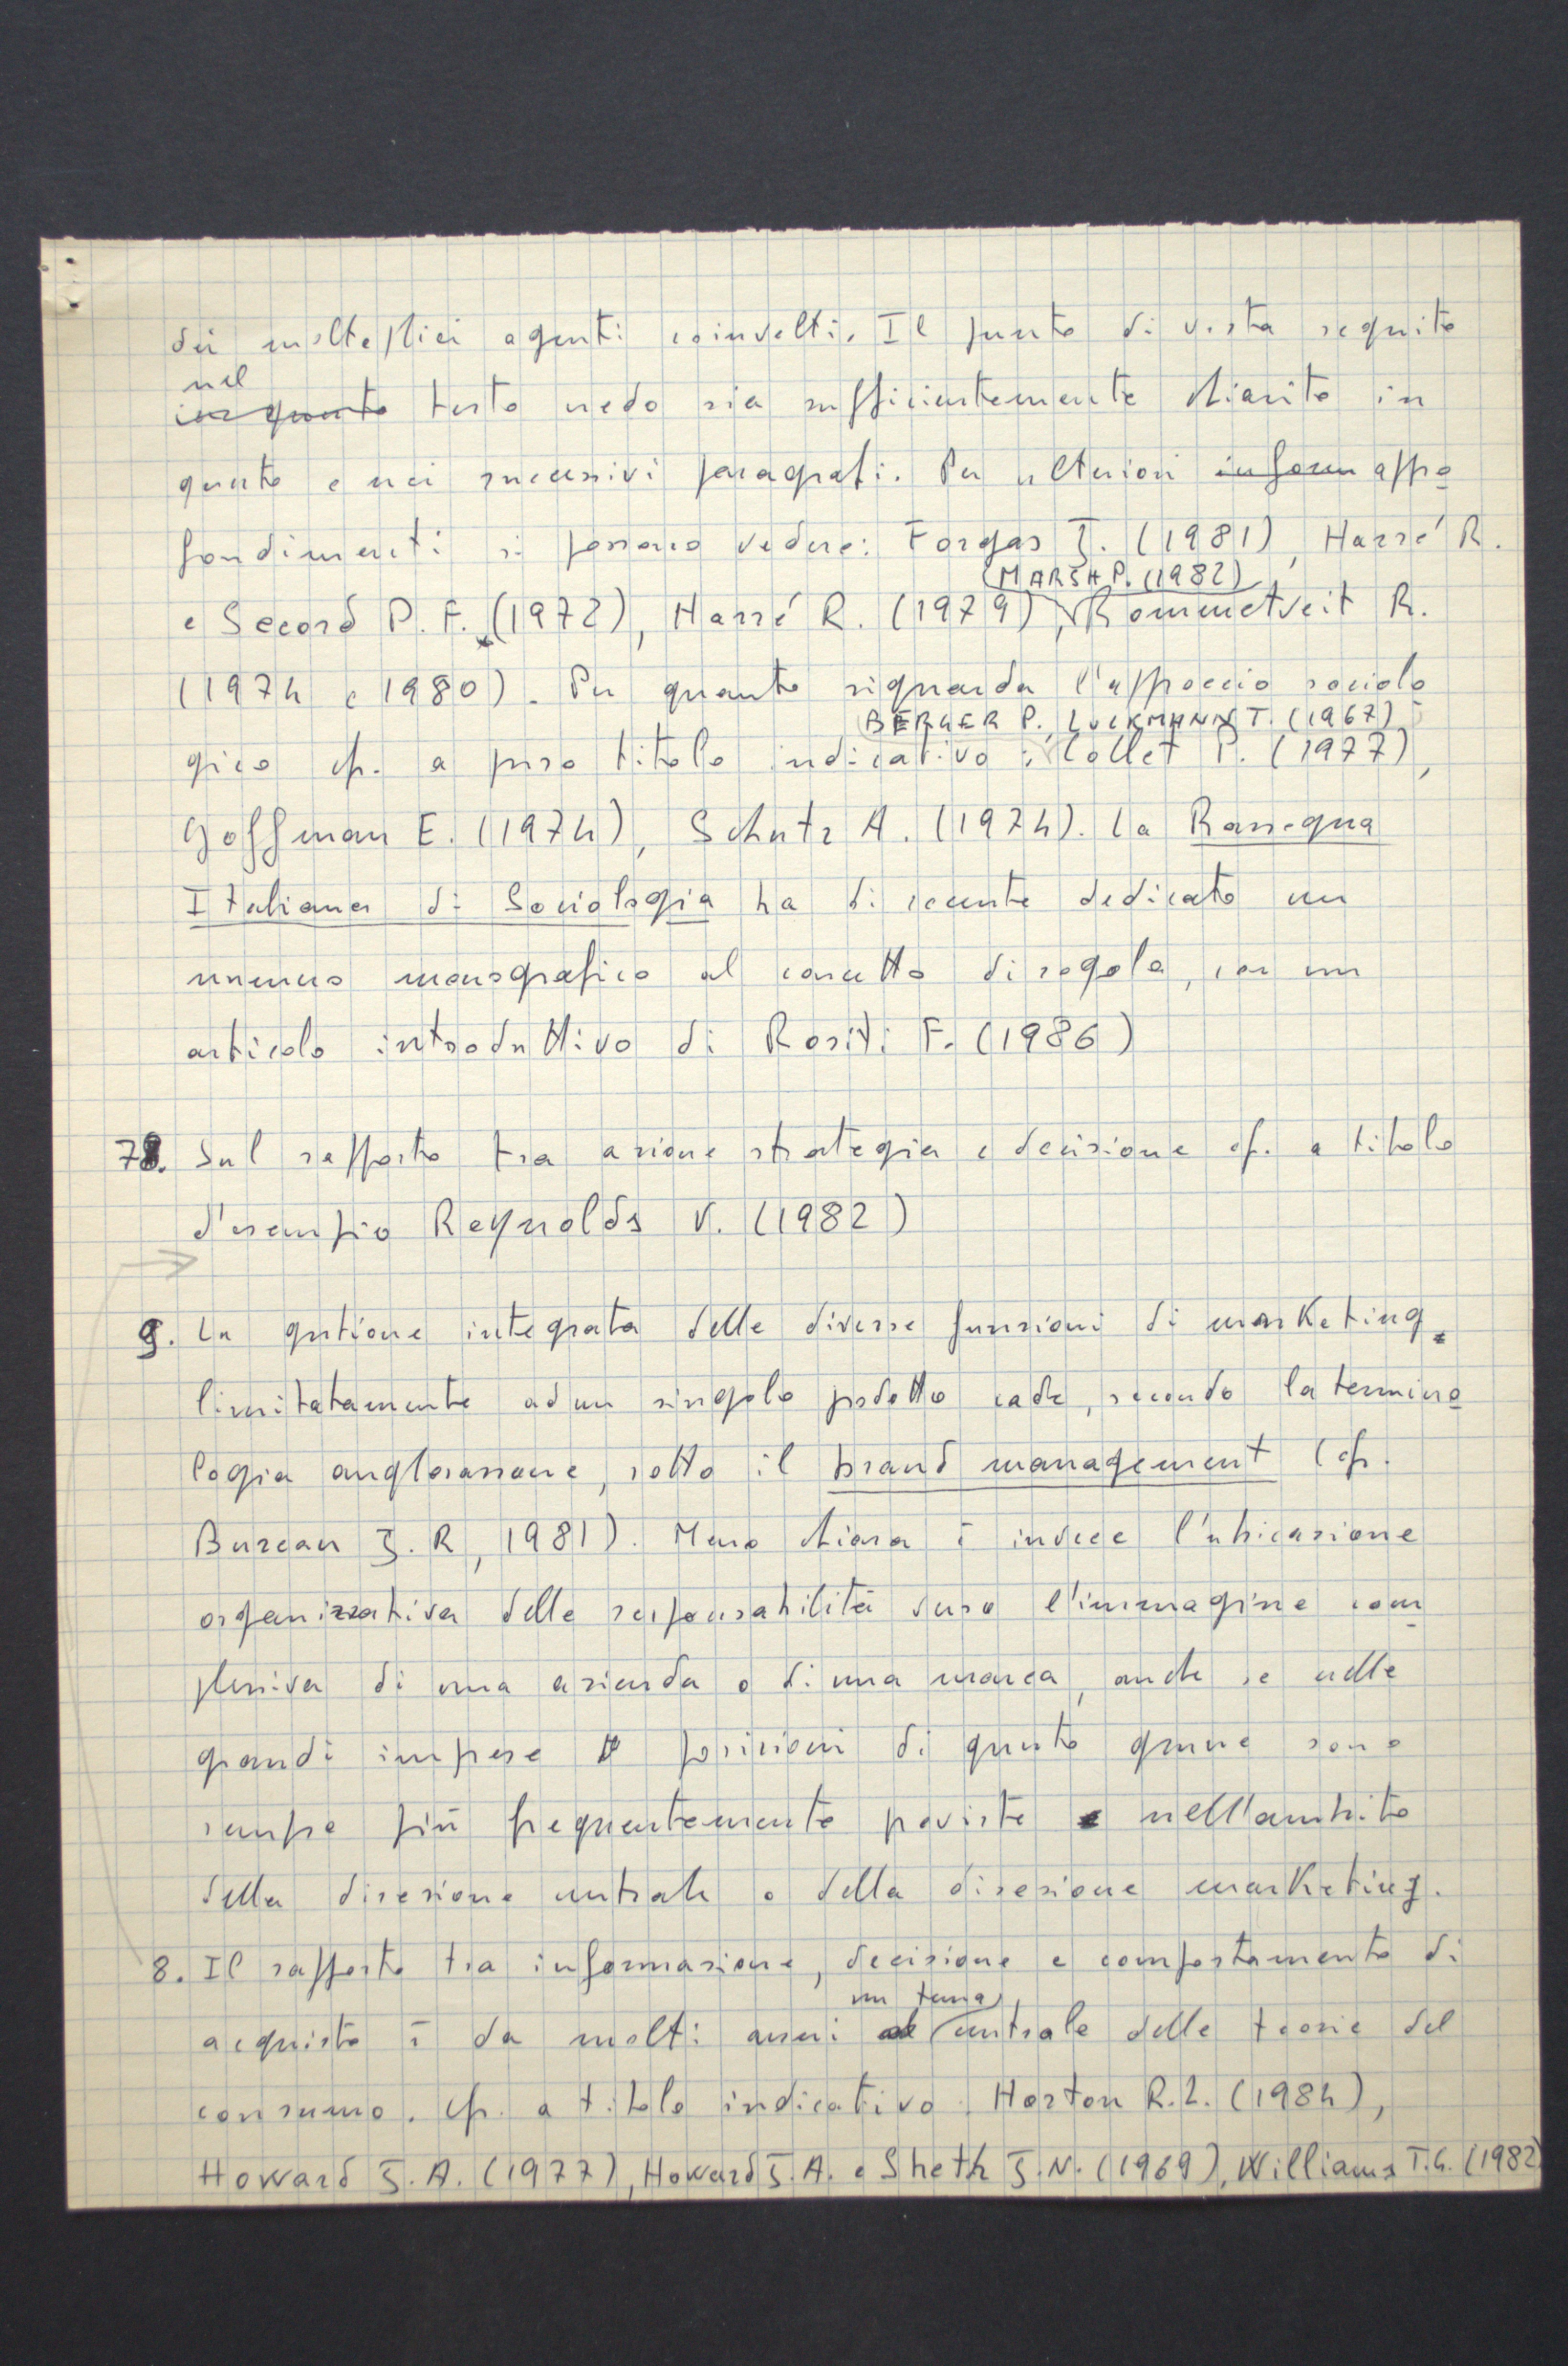 dei molteplici agenti coinvolti. Il punto di vista seguito
nel
in quanto testo credo sia sufficientemente chiarito in
questo e nei successivi paragrafi. Per ulteriori inform appro
fondimenti si possono vedere: Forgas J. (1981), Harré R.
MARSH P. (1982)
e Secord P. F. (1972), Harré R. (1979), Rommetveit R.
(1974 e 1980). Per quanto riguarda l'approccio sociolo
BERGER P., LUCKMANN T. (1967)
gico cfr. a puro titolo indicativo: Collet P. (1977),
Goffman E. (1974), Schutz A. (1974). La Rassegna
Italiana di Sociologia ha di recente dedicato un
numero monografico al concetto di regola, con un
articolo introduttivo di Rositi F. (1986)
7. Sul rapporto tra azione strategia e decisione cfr. a titolo
d'esempio Reynolds V. (1982)
9. La gestione integrata delle diverse funzioni di marketing,
limitatamente ad un singolo prodotto cade, secondo la termino
logia anglosassone, sotto il brand management (cfr.
Bureau J. R, 1981). Meno chiara è invece l'ubicazione
organizzativa delle responsabilità verso l'immagine com
plessiva di una azienda o di una marca, anche se nelle
grandi imprese posizioni di questo genere sono
sempre più frequentemente previste nell'ambito
della direzione centrale o della direzione marketing.
8. Il rapporto tra informazione, decisione e comportamento di
un tema
acquisto è da molti anni centrale delle teorie del
consumo. cfr. a titolo indicativo. Horton R.L. (1984),
Howard J. A. (1977), Howard J. A. e Sheth J. N. (1969), Williams T.G. (1982)